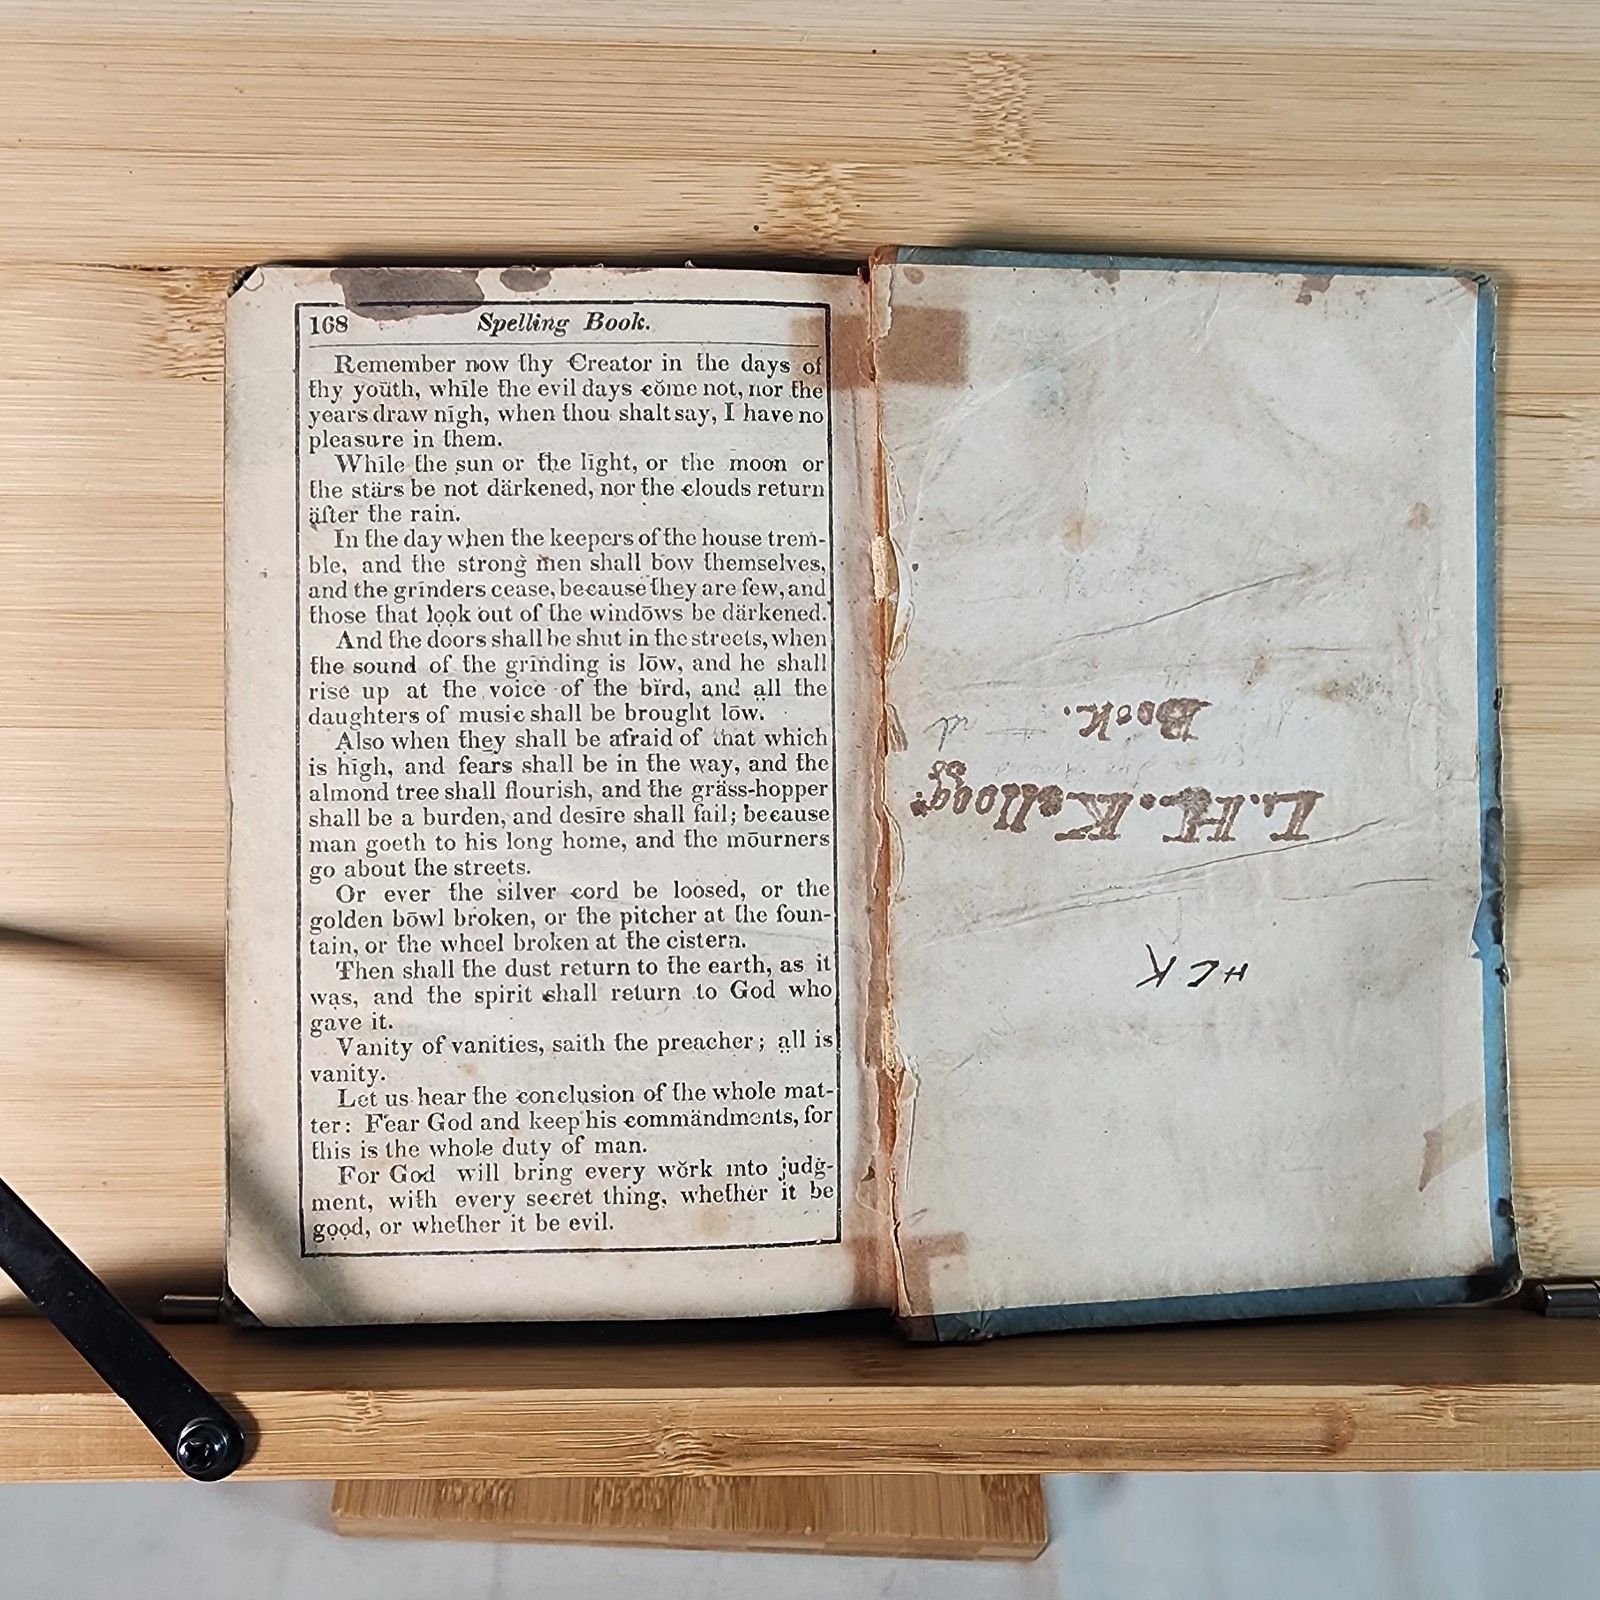 168 Spelling Book.
Remember now thy Creator in the days of
thy yoūth, while the evil days cŏme not, nor the
years draw nīgh, when thou shalt say, I have no
pleasure in them.
While the sun or the līght, or the moon or
the stärs be not därkened, nor the clouds return
äfter the rain.
In the day when the keepers of the house trem-
ble, and the strong men shall bow themselves,
and the grīnders cease, because they are few, and
those that lo̤o̤k out of the windōws be därkened.
And the doors shall be shut in the streets, when
the sound of the grīnding is lōw, and he shall
rise up at the voice of the bird, and a̤ll the
daughters of music shall be brought lōw.
Also when they shall be afraid of that which
is hīgh, and fears shall be in the way, and the
almond tree shall flourish, and the gräss-hopper
shall be a burden, and desīre shall fail; because
man goeth to his long home, and the mōurners
go about the streets.
Or ever the silver cord be loosed, or the
golden bōwl broken, or the pitcher at the foun-
tain, or the wheel broken at the cistern.
Then shall the dust return to the earth, as it
wa̤s, and the spirit shall return to God who
gave it.
Vanity of vanities, saith the preacher; a̤ll is
vanity.
Let us hear the conclusion of the whole mat-
ter: Fear God and keep his commändments, for
this is the whole duty of man.
For God will bring every wŏrk into judġ-
ment, with every secret thing, whether it be
go̤o̤d, or whether it be evil.
HLK
L.H. Kellogg's
Book.